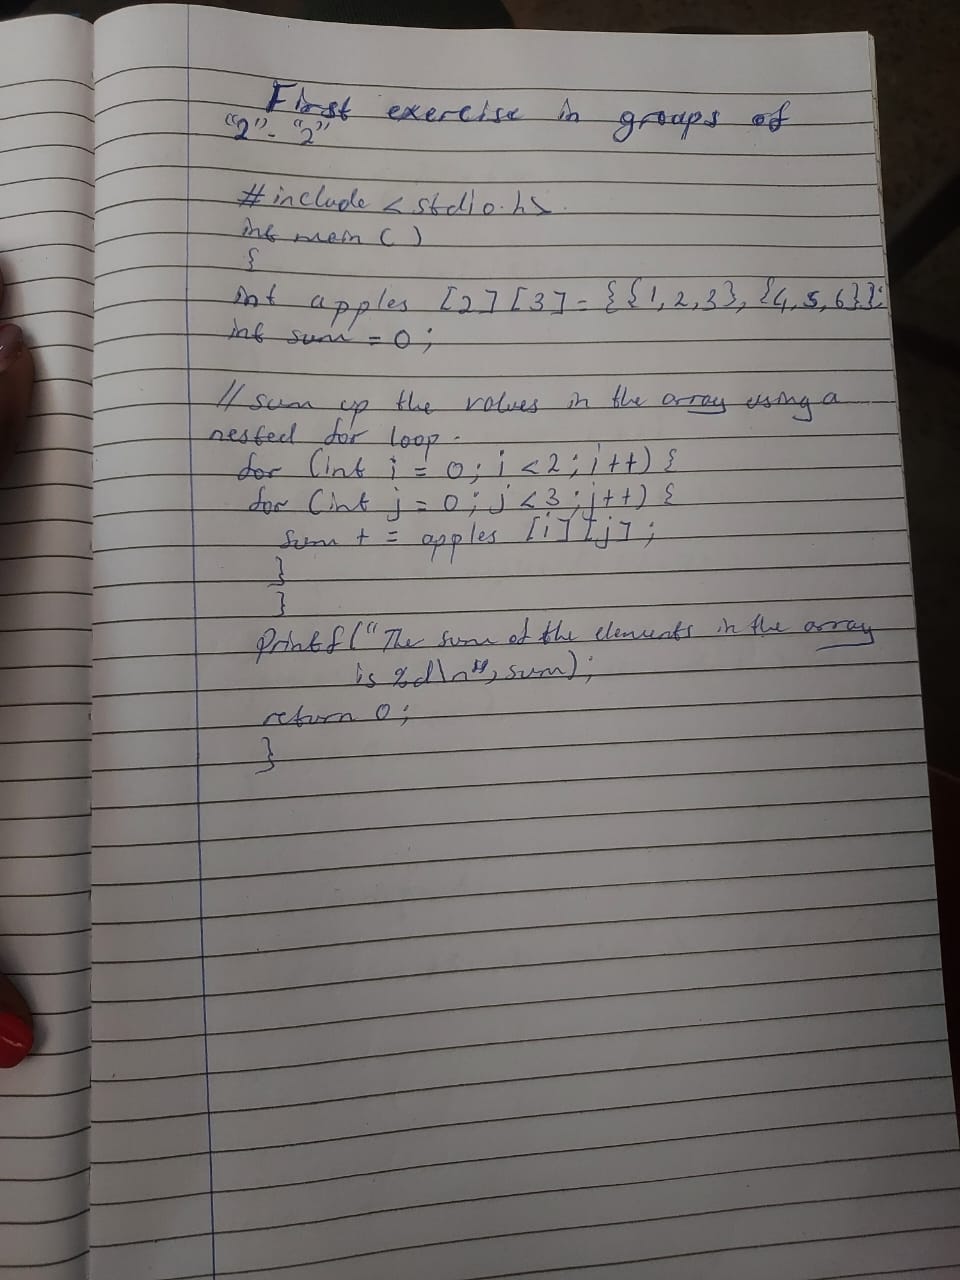 First exercise in groups of
"2" - "2"
#include <stdio.h>
int main ( )
{
int apples [2] [3] = {{1, 2, 3}, {4, 5, 6}};
int sum = 0;
// sum up the values in the array using a
nested for loop.
for (int i = 0; i < 2; i++) {
for (int j = 0; j < 3; j++) {
sum += apples [i] [j];
}
}
printf("The sum of the elements in the array
is %d\n", sum);
return 0;
}